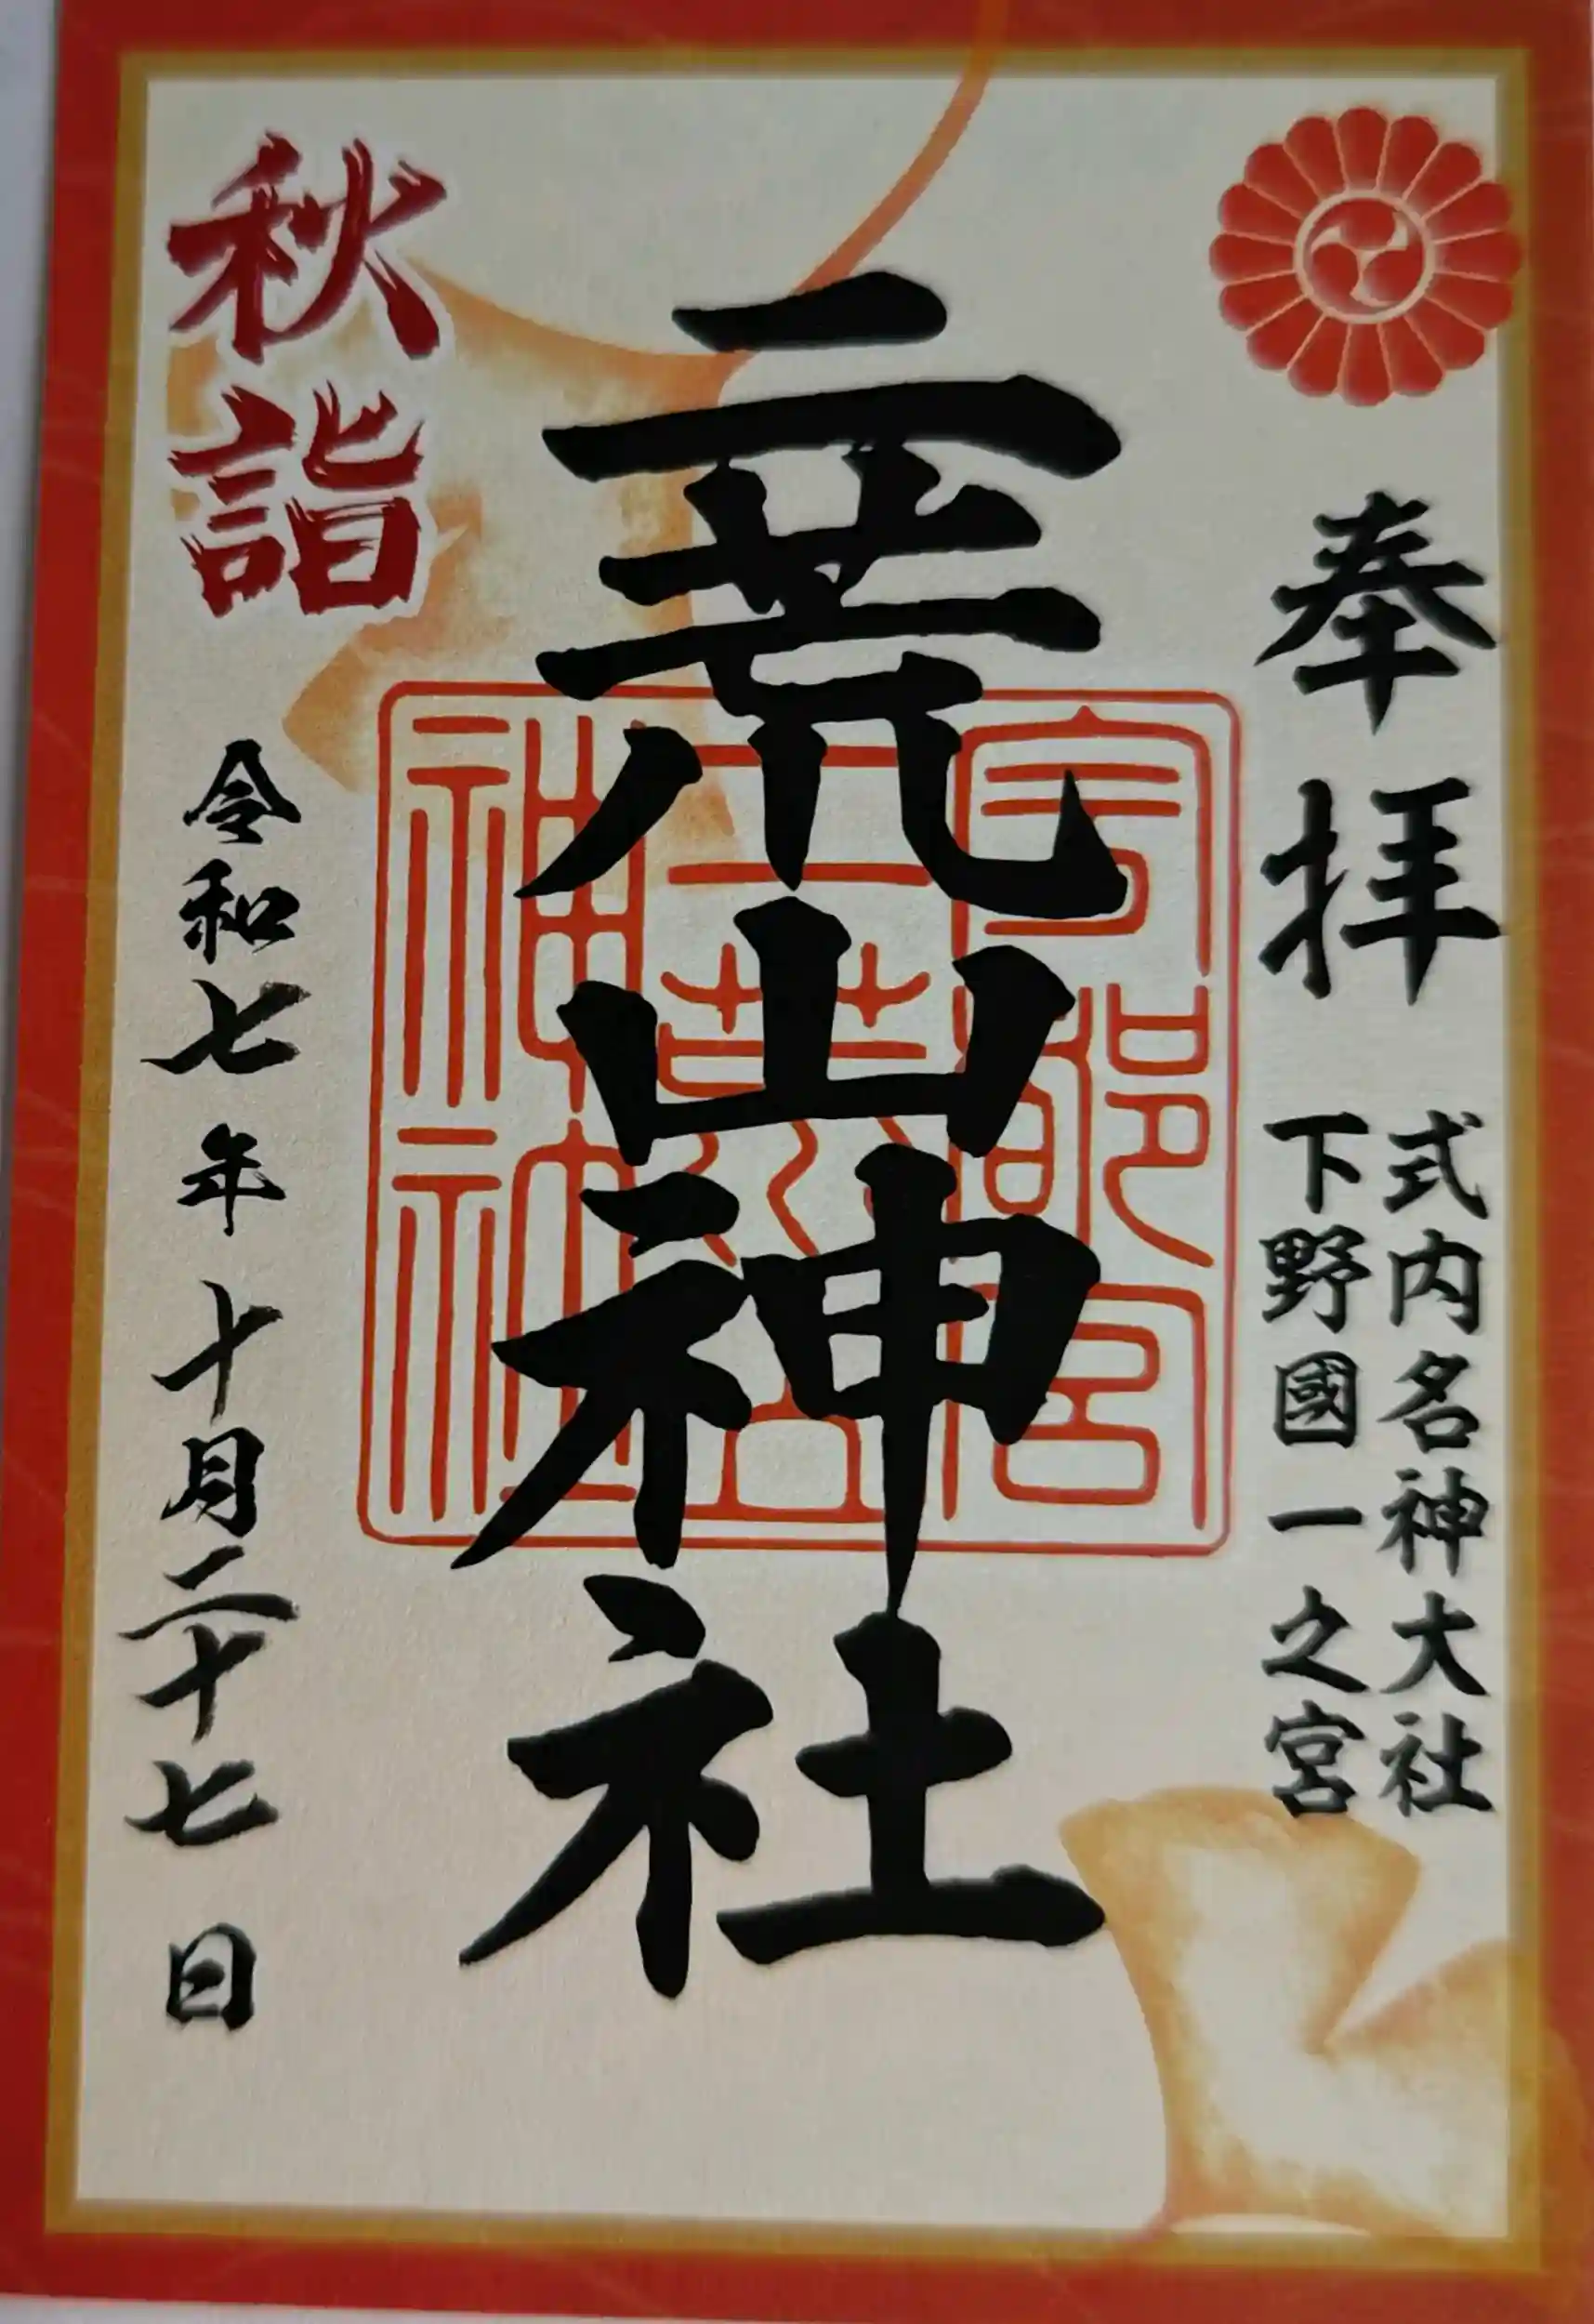 奉拝
式内名神大社
下野國一之宮
二荒山神社
宇都宮
二荒山
神社
秋詣
令和七年十月二十七日